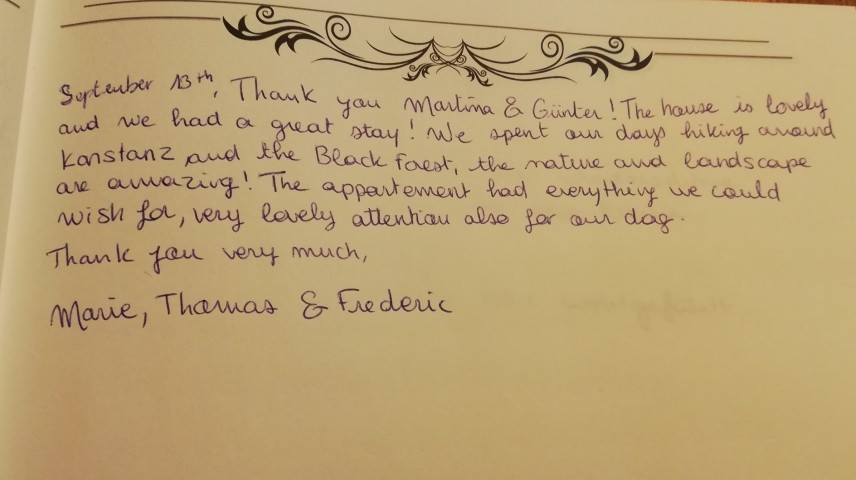 September 13th, Thank you Martina & Günter! The house is lovely
and we had a great stay! We spent our days hiking around
Konstanz and the Black Forest, the nature and landscape
are amazing! The appartement had everything we could
wish for, very lovely attention also for our dog.
Thank you very much,
Marie, Thomas & Frederic